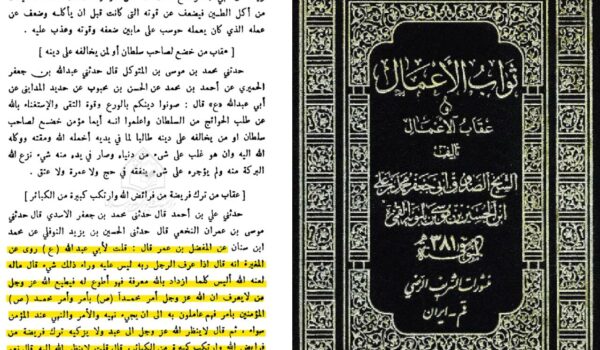 من أكل الطين فيضعف عن قوته التى كانت قبل ان يأكله وضعف عن
عمله الذي كان يعمله حوسب على مابين ضعفه وقوته وعذب عليه
[ عقاب من خضع لصاحب سلطان أو لمن يخالفه على دينه ]
حدثني محمد بن موسى بن المتوكل قال حدثني عبدالله بن جعفر
الحميري عن أحمد بن محمد عن الحسن بن محبوب عن حديد المدايني عن
أبي عبدالله «ع» قال : صونوا دينكم بالورع وقوة التقى والإستغناء بالله
عن طلب الحوائج من السلطان واعلموا انه أيما مؤمن خضع لصاحب
سلطان او من يخالفه على دينه طالبا لما في يديه أخمله الله ومقته ووكله
الله اليه وان هو غلب على شيء من دنياه وصار في يده منه شيء نزع الله
البركة منه ولم يؤجره على شيء ينفقه في حج ولا عمرة ولا عتق .
[ عقاب من ترك فريضة من فرائض الله وارتكب كبيرة من الكبائر ]
حدثني علي بن أحمد قال حدثني محمد بن جعفر الاسدي قال حدثني
موسى بن عمران النخعي قال حدثني الحسين بن يزيد النوفلي عن محمد
ابن سنان عن المفضل بن عمر قال : قلت لأبي عبد الله ( ع ) روى عن
المغيرة انه قال اذا عرف الرجل ربه ليس عليه وراء ذلك شيء قال ماله
لعنه الله أليس كلما ازداد بالله معرفة فهو أطوع له فيطيع الله عز وجل
من لايعرف ان الله عز وجل أمر محمداً (ص) بأمر وأمر محمد (ص)
المؤمنين بأمر فهم عاملون به الى ان يجيء نهيه والأمر والنهي عند المؤمن
سواء ، ثم قال لاينظر الله عز وجل الى عبد ولا يزكيه ترك فريضة من
فرائض الله وارتكب كبيرة من الكبائر قال قلت لاينظر الله اليه قال نعم
ثواب الأعمال
و
عقاب الأعمال
تأليف
الشيخ الصدوق أبي جعفر محمد بن علي
ابن الحسين بن موسى بن بابويه القمي
المتوفى سنة ٣٨١
منشورات الشريف الرضي
قم - ايران